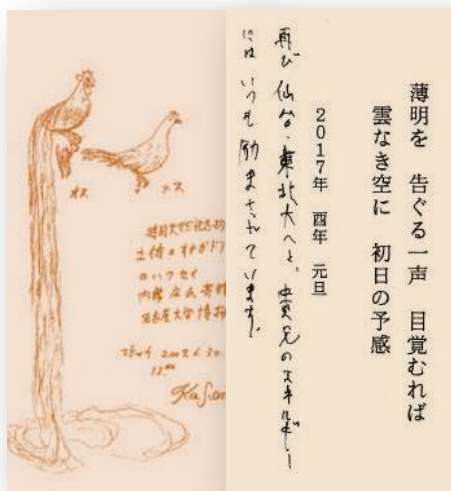 薄明を　告ぐる一声　目覚むれば
雲なき空に　初日の予感
2017年　酉年　元旦
再び仙台・東北大へと、貴兄のエネルギー
には いつも励まされています。
オス
メス
土佐のオナガドリ
のハクセイ
名古屋大学博物